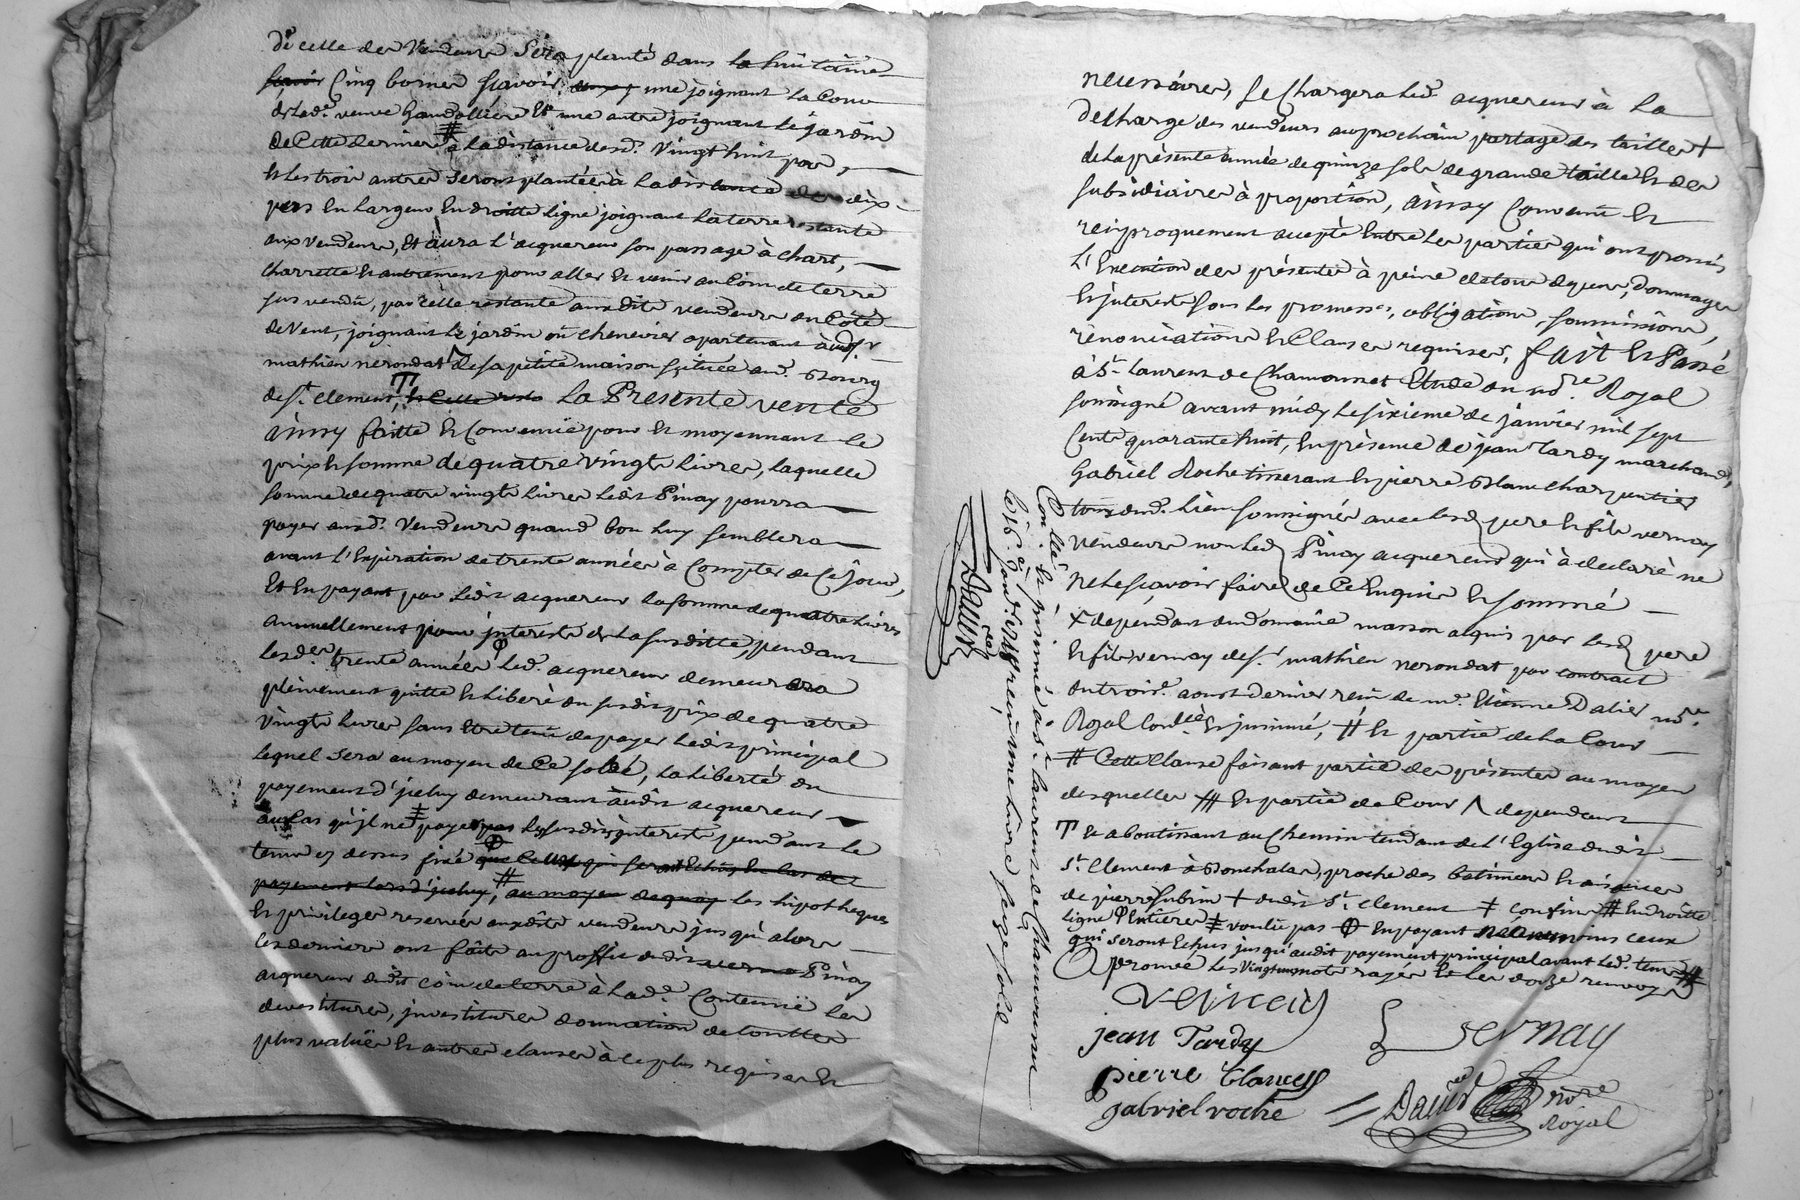 de celle des Vendeurs Sera planté dans la huitaine
scavoir Cinq bornes scavoir une joignant la Cour
de lade. veuve Gaudollière Et une autre joignant le jardin
de Cette derniere à la distance desd. Vingt huit pas,
Et les trois autres seront plantées à la distance de dix
pas En largeur En droitte ligne joignant la terre restante
aux vendeurs, Et aura l'acquereur son passage à chart,
charrette Et autrement pour aller Et venir au Coin de terre
sus vendu, par celle restante ausdits vendeurs du Côté
de Vent, joignant le jardin ou chenevier apartenant audt. sr.
mathieu nerondat de sa petite maison scituée aud. Bourg
de St. clement, La Presente vente
ainsy faitte Et Convenue pour Et moyennant le
prix Et somme de quatre vingts livres, laquelle
somme de quatre vingts livres ledit Pinay pourra
payer ausd. Vendeurs quand bon luy semblera
avant l'Expiration de trente années à Compter de Ce jour,
Et En payant par ledit acquereur la somme de quatre livres
annuellement pour jnterests de la susditte, pendant
lesdes. trente années led. acquereur demeurera
pleinement quitte Et liberé du susdit prix de quatre
Vingts livres sans Etre tenu de payer ledit principal
lequel sera au moyen de Ce soldé, la liberté du
payement d'jceluy demeurant audit acquereur
au Cas qu'jl ne paye pas les susdits jnterests pendant le
tems cy dessus fixé que Ceux qui seront Echus En Cas de
payement lors d'jceluy, au moyen de quoy les hipotheques
Et privileges reservés ausdits vendeurs jusqu'alors
ces derniers ont faite au proffit dudit vernay Pinay
acquereur dudit coin de terre à lad. Contenue les
devestitures, jnvestitures donnation de touttes
plus values Et autres clauses à ce plus requises Et
necessaires, se Chargera led. acquereur à la
decharge des vendeurs au prochain partage des tailles +
de la présente année de quinze sols de grande taille Et des
subsidiaires à proportion, ainsy Convenu Et
reciproquement accepté Entre les parties qui ont promis
l'Execution des présentes à peine de tous depens, dommages
Et jnterests sous les promesses, obligations, soumissions,
rénonciations Et Clauses requises, fait Et Passé
à St. Laurent de Chamousset Etude du nore. Royal
soussigné avant midy le sixieme de janvier mil sept
Cents quarante huit, En présence de jean Tardy marchand,
Gabriel Roche tisserant Et pierre Blanc charpentier
tous dud. lieu soussignés avec lesd. pere Et fils vernay
vendeurs non led. Pinay acquereur qui à declaré ne
ne le scavoir faire de Ce Enquis Et sommé
x dépendant du domaine masson acquis par lesd. pere
Et fils vernay de sr. mathieu nerondat par contract
du trois. aoust dernier reçu de me. Etienne Dalier nore.
Royal Conllé. Et jnsinué, # Et partie de la Cour
# Cette Clause faisant partie des présentes au moyen
desquelles # Et partie de Cour Λ dependant
T Et aboutissant au Chemin tendant de l'Eglise dudit
St. Clement à Bonchalas, proche des batiments Et aisances
de pierre Subrin + dudit St. Clement ‡ confins # En droitte
ligne Entiere ‡ voulu pas Φ En payant néanmoins ceux
qui seront Echus jusqu'audit payement principal avant led. tems #
Aprouvé les Vingt un mots rayés Et les douze renvoys
Conllé. Et jnsinué à St. Laurent de Chamousset
le 16. janv. 1748 reçu une livre seize sols
David
vernay
Vernay
jean Tardy
pierre blanc
gabriel roche
David Nore.
Royal